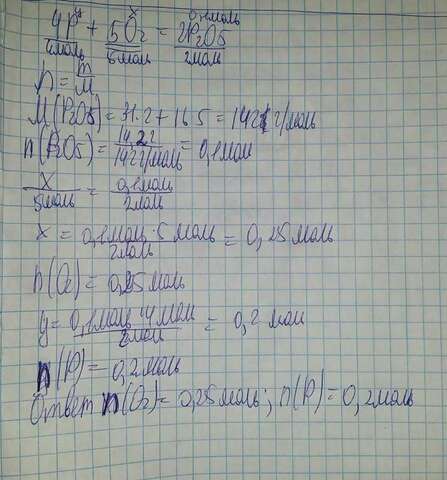 y x 0,1моль
4P + 5O2 = 2P2O5
4моль 5моль 2моль
n = m/M
M(P2O5) = 31·2 + 16·5 = 142 г/моль
n(P2O5) = 14,2г / 142г/моль = 0,1моль
x / 5моль = 0,1моль / 2моль
x = 0,1моль · 5 моль / 2моль = 0,25 моль
n(O2) = 0,25 моль
y = 0,1моль · 4 моль / 2моль = 0,2 моль
n(P) = 0,2моль
Ответ n(O2) = 0,25моль; n(P) = 0,2моль